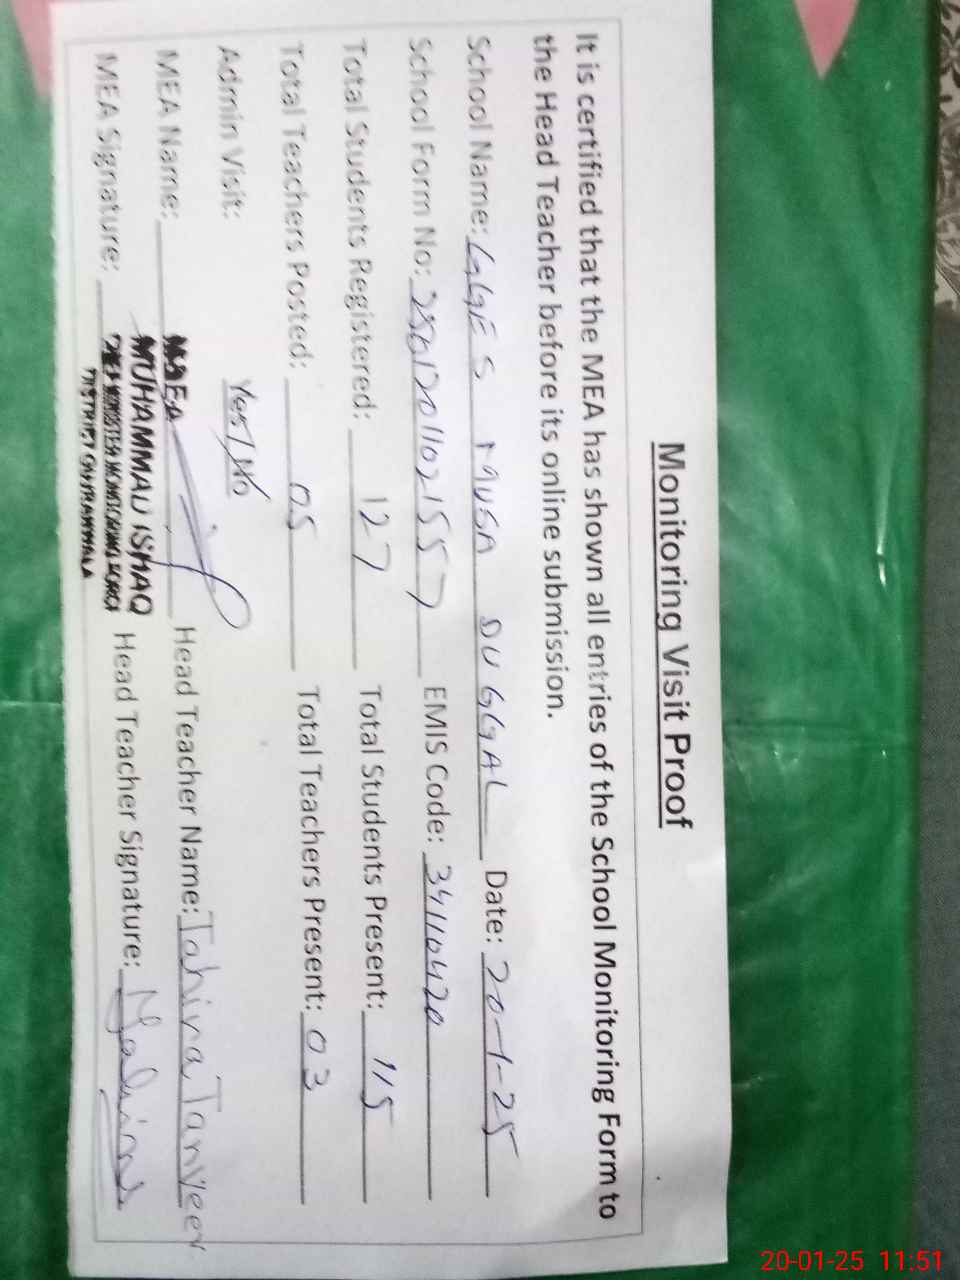 Monitoring Visit Proof
It is certified that the MEA has shown all entries of the School Monitoring Form to
the Head Teacher before its online submission.
School Name: GGES MUSA DUGGAL Date: 20-1-25
School Form No: EMIS Code: 34110420
Total Students Registered: 127 Total Students Present: 115
Total Teachers Posted: 05 Total Teachers Present: 03
Admin Visit: Yes/No
MEA Name: MEA Head Teacher Name: Tahira Tanveer
MUHAMMAD ISHAQ
MEA Signature: Head Teacher Signature:
20-01-25 11:51